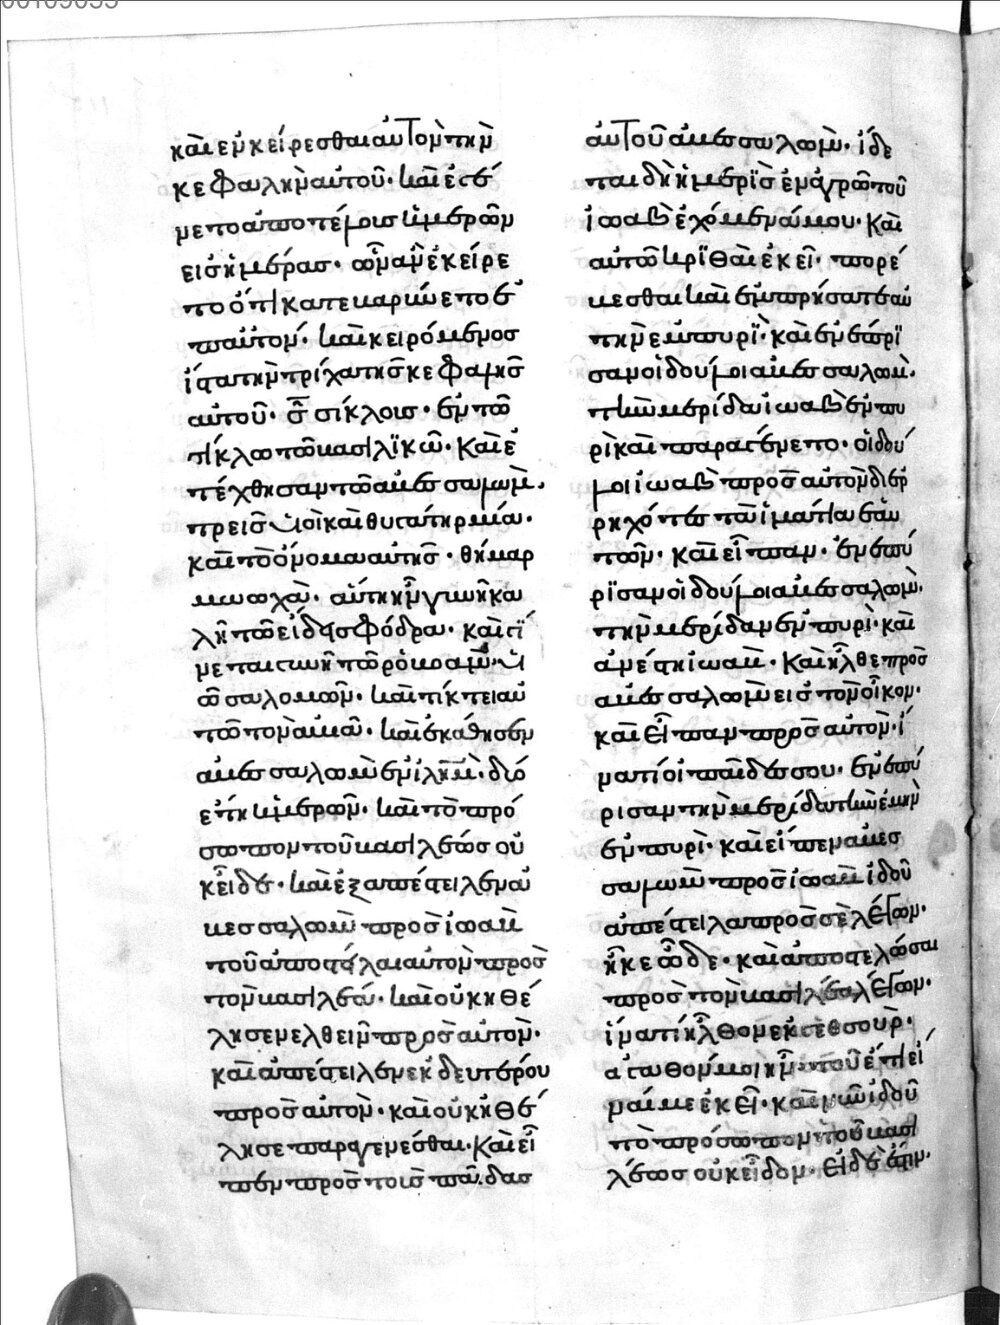 καὶ ἐν κείρεσθαι αὐτὸν τὴν
κεφαλὴν αὐτοῦ· καὶ ἐγέ
νετο ἀπὸ τέλους ἡμερῶν
εἰς ἡμέρας· ὡς ἂν ἐκείρε
το ὅτι κατεβαρύνετο ἐ
π' αὐτόν· καὶ κειρόμενος
ἵστα τὴν τρίχα τῆς κεφαλῆς
αὐτοῦ· σ̅ σίκλους· ἐν τῶ
σίκλω τῶ βασιλϊκῶ· καὶ ἐ
τέχθησαν τῶ ἀβεσσαλώμ·
τρεῖς υἱοὶ καὶ θυγάτηρ μία·
καὶ τὸ ὄνομα αὐτῆς· θήμαρ
αὕτη ἦν γυνὴ κα
λὴ τῶ εἴδει σφόδρα· καὶ γί
νεται γυνὴ τῶ ῥοβοὰμ υἱ
ῶ σαλομῶν· καὶ τίκτει αὐ
τῶ τὸν ἀβιά· καὶ ἐκάθησεν
ἀβεσσαλὼμ ἐν ἰλ̅η̅μ̅· δύο
ἔτη ἡμερῶν· καὶ τὸ πρό
σωπον τοῦ βασιλέως οὐ
κ εἶδε· καὶ ἐξαπέστειλεν ἀ
βεσσαλὼμ πρὸς ἰωὰβ
τοῦ ἀποστεῖλαι αὐτὸν πρὸς
τὸν βασιλέα· καὶ οὐκ ἠθέ
λησεν ἐλθεῖν πρὸς αὐτόν·
καὶ ἀπέστειλεν ἐκ δευτέρου
πρὸς αὐτόν· καὶ οὐκ ἠθέ
λησε παραγενέσθαι· καὶ εἶ
πεν πρὸς τοὺς παῖδας
αὐτοῦ ἀβεσσαλώμ· ἴδε
ἡ μερὶς ἐν ἀγρῶ τοῦ
ἰωὰβ ἐχόμενά μου· καὶ
αὐτῶ κριθαὶ ἐκεῖ· πορεύ
εσθαι καὶ ἐμπρήσατε αὐ
τὴν ἐν πυρί· καὶ ἐνέπρϊ
σαν οἱ δοῦλοι ἀβεσσαλώμ·
τὴν μερίδα ἰωὰβ ἐν πυ
ρὶ καὶ παραγένετο· οἱ δοῦ
λοι ἰωὰβ πρὸς αὐτὸν διερ
ρηχότες τὰ ἱμάτια ἑαυ
τῶν· καὶ εἶπαν· ἐνεπύ
ρϊσαν οἱ δοῦλοι ἀβεσσαλώμ·
τὴν μερίδα ἐν πυρί· καὶ
ἀνέστη ἰωάβ· καὶ ἦλθε πρὸς
ἀβεσσαλὼμ εἰς τὸν οἶκον·
καὶ εἶπαν πρὸς αὐτόν· ἵ
να τί οἱ παῖδες σου· ἐνεπύ
ρισαν τὴν μερίδα τὴν ἐμὴν
ἐν πυρί· καὶ εἶπεν ἀβεσ
σαλὼμ πρὸς ἰωὰβ ἰδοῦ
ἀπέστειλα πρὸς σὲ λέγων·
ἧκε ὧδε· καὶ ἀποστελῶ σαι
πρὸς τὸν βασιλέα λέγων·
ἵνα τί ἦλθον ἐκ γεθσούρ·
ἀγαθόν μοι ἦν τοῦ ἔτι εἶ
ναί με ἐκεῖ· καὶ νῦν ἰδοῦ
τὸ πρόσωπον τοῦ βασι
λέως οὐκ εἶδον· εἰ δέ ἐστιν·